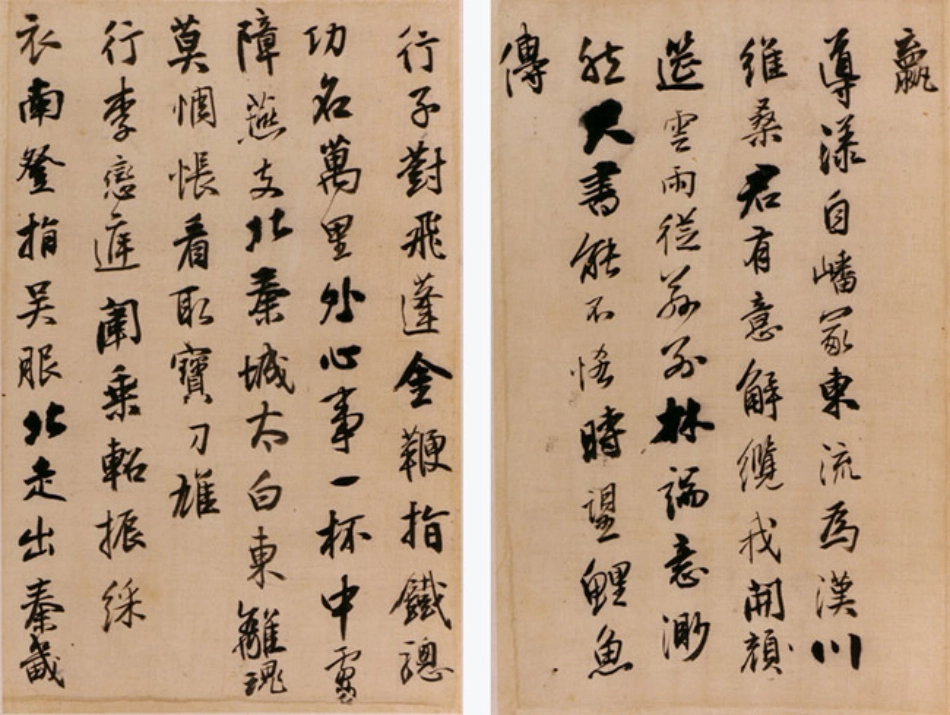 贏
導漾自嶓冢東流為漢川
維桑君有意解纜我開顏
筵雲雨從茲別林端意渺
然尺書能不悋時望鯉魚
傳
行子對飛蓬金鞭指鐵驄
功名萬里外心事一杯中虜
障燕支北秦城太白東離魂
莫惆悵看取寶刀雄
行李戀庭闈乘軺振綵
衣南登指吳服北走出秦畿